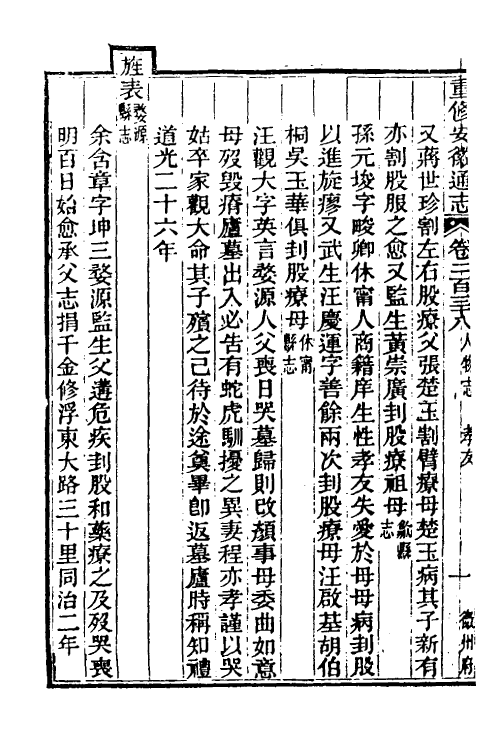 重修安徽通志 卷二百三十八 人物志 孝友 一 徽州府
又蔣世珍割左右股療父張楚玉割臂療母楚玉病其子新有
亦割股服之愈又監生黃崇廣刲股療祖母歙縣志
孫元埈字畯卿休甯人商籍庠生性孝友失愛於母母病刲股
以進旋瘳又武生汪慶運字善餘兩次刲股療母汪啟基胡伯
桐吳玉華俱刲股療母休甯縣志
汪觀大字英言婺源人父喪日哭墓歸則改顏事母委曲如意
母歿毀瘠廬墓出入必告有蛇虎馴擾之異妻程亦孝謹以哭
姑卒家觀大命其子殯之己待於途奠畢卽返墓廬時稱知禮
道光二十六年
旌表婺源縣志
余含章字坤三婺源監生父遘危疾刲股和藥療之及歿哭喪
明百日始愈承父志捐千金修浮東大路三十里同治二年